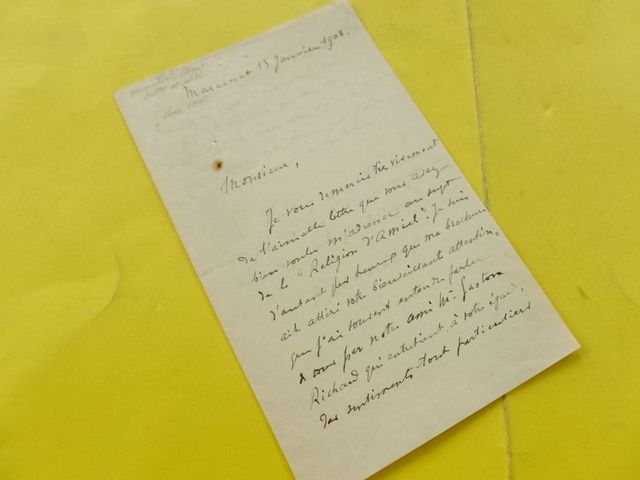 13 Janvier 1908.
Monsieur,
Je vous remercie très vivement
de l'aimable lettre que vous avez
bien voulu m'adresser au sujet
de la "Religion d'Amiel". Je suis
d'autant plus heureux que ma brochure
ait attiré votre bienveillante attention,
que j'ai souvent entendu parler
de vous par notre ami Mr. Gaston
Richard qui entretient à votre égard,
des sentiments tout particuliers